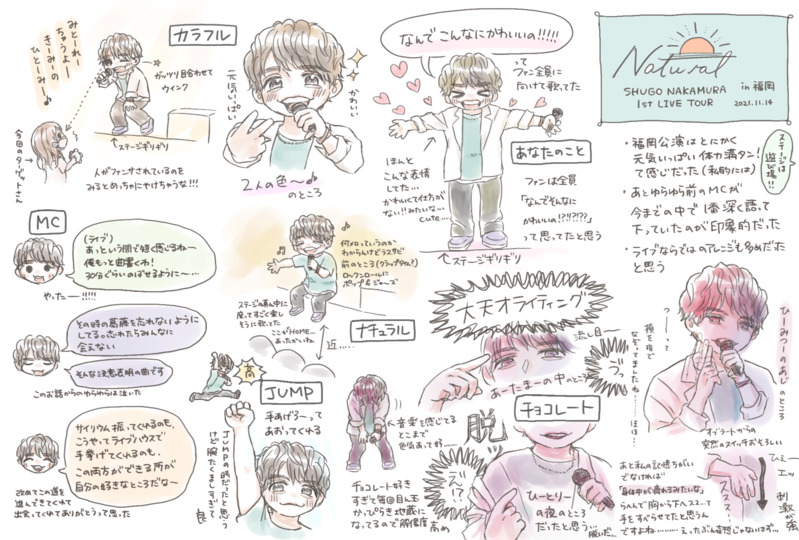 みとーれー
ちゃうよー
きーみーの
ひとーみー♪
カラフル
ガッツリ目合わせて
ウインク
今回のターゲットさん
ステージギリギリ
人がファンサされているのを
みるとめっちゃにやけちゃうな!!!
元気いっぱい
かわいい
2人の色〜♪
のところ
なんでこんなにかわいいの!!!!!
って
ファン全員に
向けて歌ってた
ほんと
こんな表情
してた…
かわいくて仕方が
ない!!みたいな…
cute…
あなたのこと
ファンは全員
「なんでそんなに
かわいいの!?!?!??」
って思ってたと思う
ステージギリギリ
Natural
in 福岡
SHUGO NAKAMURA
1ST LIVE TOUR
2021.11.14
・福岡公演はとにかく
元気いっぱい体力満タン!
て感じだった(私的には)
ステージは
遊び場!!
・あとゆらゆら前のMCが
今までの中で1番深く語って
下っていたのが印象的だった
・ライブならではのアレンジも多めだった
と思う
MC
(ライブ)
あっという間で短く感じるね〜
俺もっと曲書くわ!
30分ぐらいのばせるように〜…
やったー!!!!!
その時の葛藤を忘れないように
してる。忘れたらみんなに
会えない
そんな決意表明の曲です
このお話からのゆらゆらは泣いた
サイリウム振ってくれるのも、
こうやってライブハウスで
手挙げてくれるのも、
この両方ができる所が
自分の好きなところだな〜
改めてこの道を
進んできてくれて
出会ってくれてありがとうって思った
何メロっていうのか
わからんけどラスサビ
前のところ(クラップタイム?)
ロックンロールに
ポップ&ジャーズ
ステージの真ん中に
座ってすごく楽し
そうに歌ってた
ここがHOME…
あったかいね
ナチュラル
近……
高
JUMP
手あげろ〜って
あおってくれる
JUMPの時だったと思う
けど腕たくましすぎて
良
大天才ライティング
流し目〜
あーたまーの中のところ
チョコレート
音楽を感じてる
とこまで
色気あって好……
チョコレート好き
すぎて毎回目ん玉
かっぴらき地蔵に
なってるので解像度
高め
脱
え!?
ひーとりー
の夜のところ
だったと思う…
脱いだ…
ゔっ
ひーみつーのあじ
のところ
つーーって
頬を指で
なぞってましたね!……ほほ!…
オブラートからの
突然のスイッチおそろしい
あと私の記憶ちがい
でなければ
「身体中が痺れるみたいな」
らへんで胸から下へススス…て
手をすべらせてたと思うん
ですよね………えったぶん妄想じゃないはず…
ひぇー
エッ
ススス
刺激が強